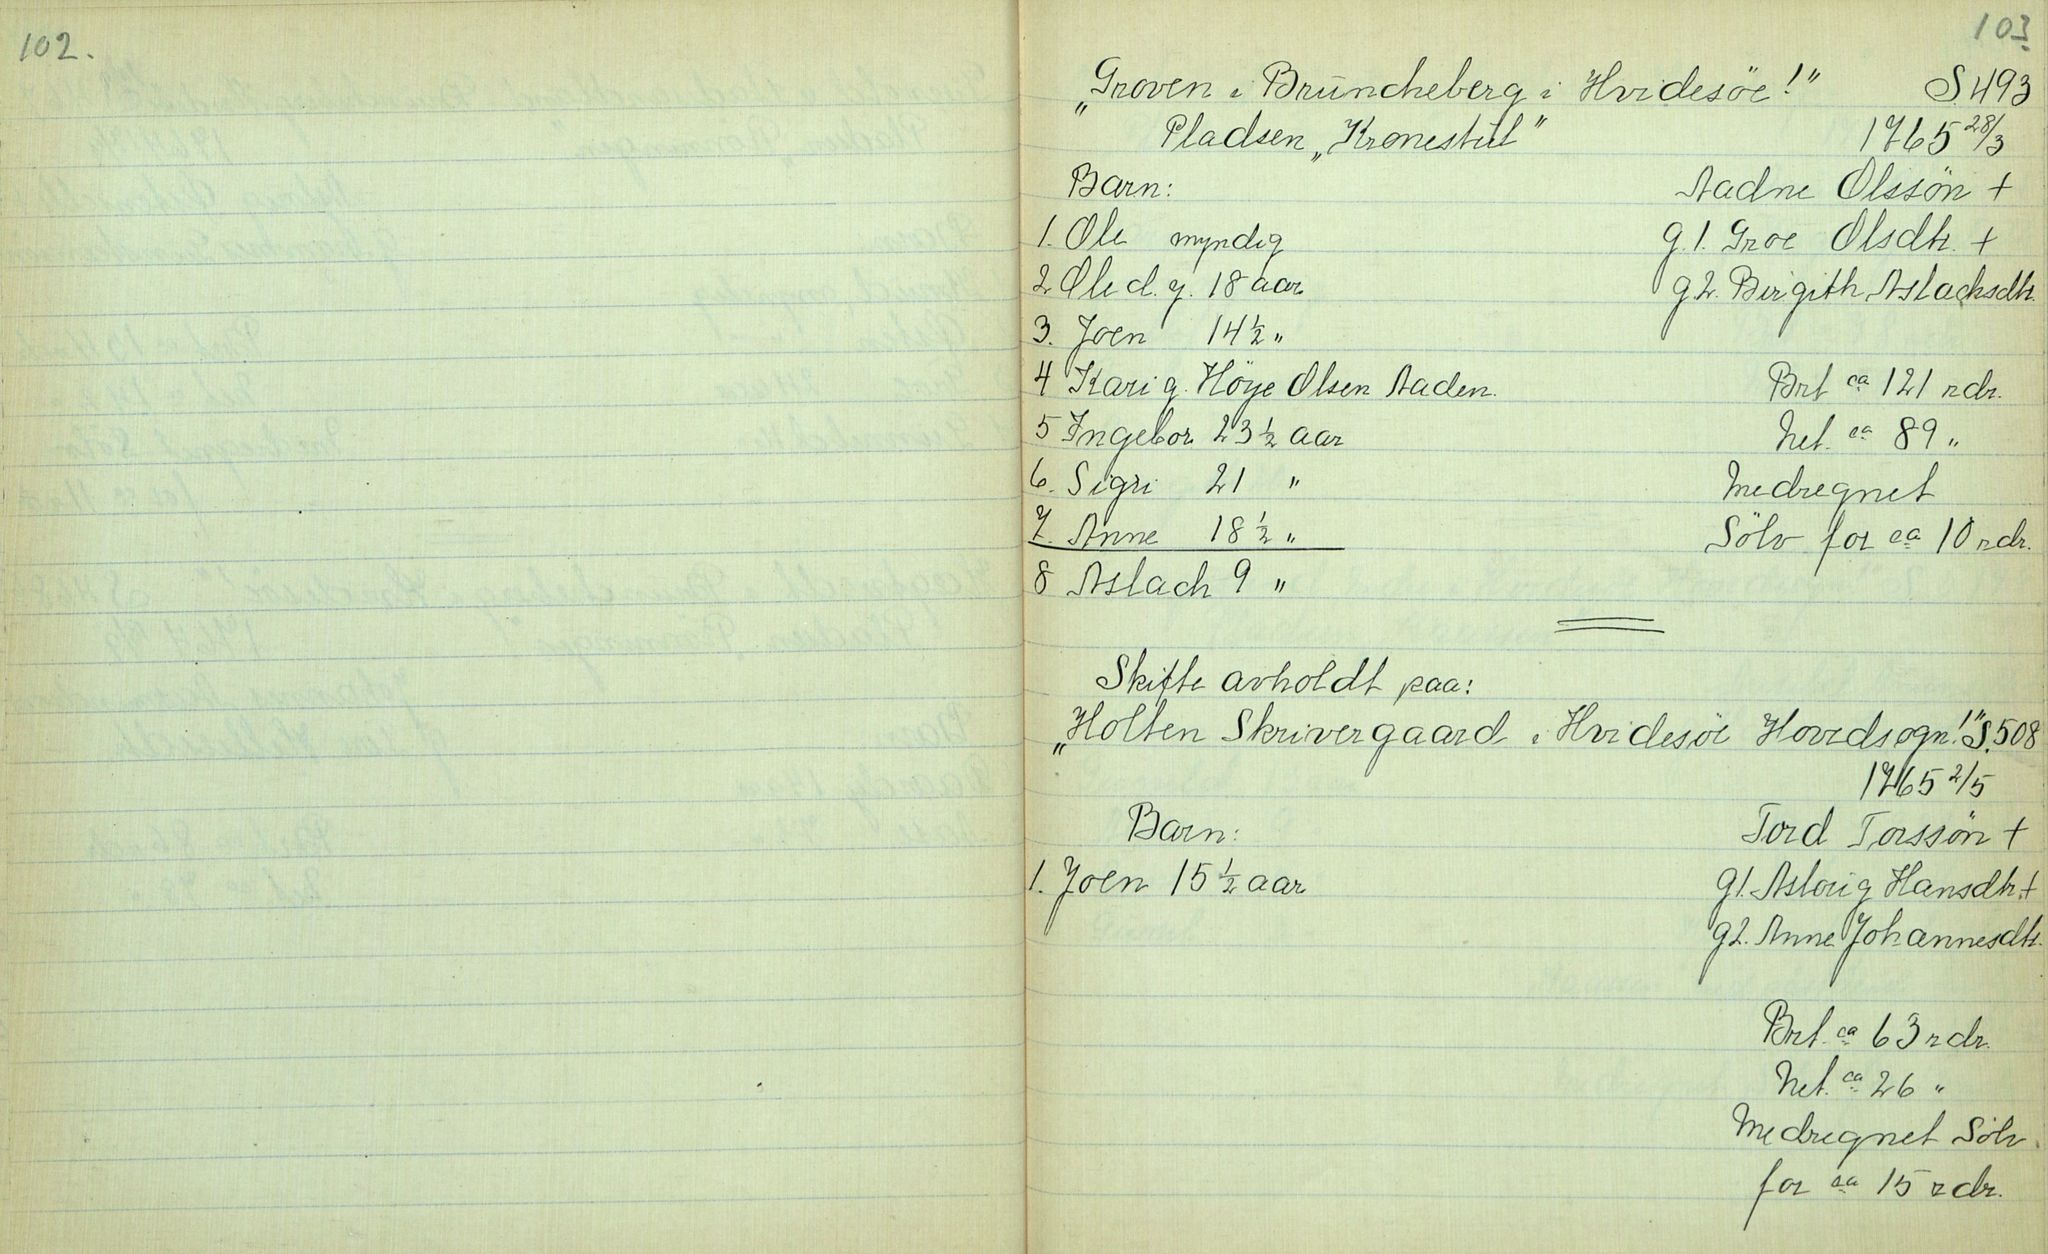 102.
103
„Groven i Brüncheberg i Hvidesöe!" S 493
Pladsen „Kronestül" 1765 28/3
Barn: Aadne Olssön +
1. Ole myndig g. 1. Groe Olsdtr. +
2 Ole d. y. 18 aar g. 2. Birgith Aslachsdtr.
3. Joen 14 1/2 "
4 Kari g. Höye Olsen Aaden. Brt ca 121 rdr.
5 Ingebor 23 1/2 aar Net. ca 89 "
6. Sigri 21 " Medregnet
7. Anne 18 1/2 " Sölv for ca 10 rdr.
8 Aslach 9 "
Skifte avholdt paa:
„Holten Skrivergaard i Hvidesöe Hovedsogn!" S. 508
1765 2/5
Barn: Tord Torssön +
1. Joen 15 1/2 aar g1. Aslaug Hansdtr. +
g2. Anne Johannesdtr.
Brt. ca 63 rdr.
Net. ca 26 "
Medregnet Sölv
for ca 15 rdr.